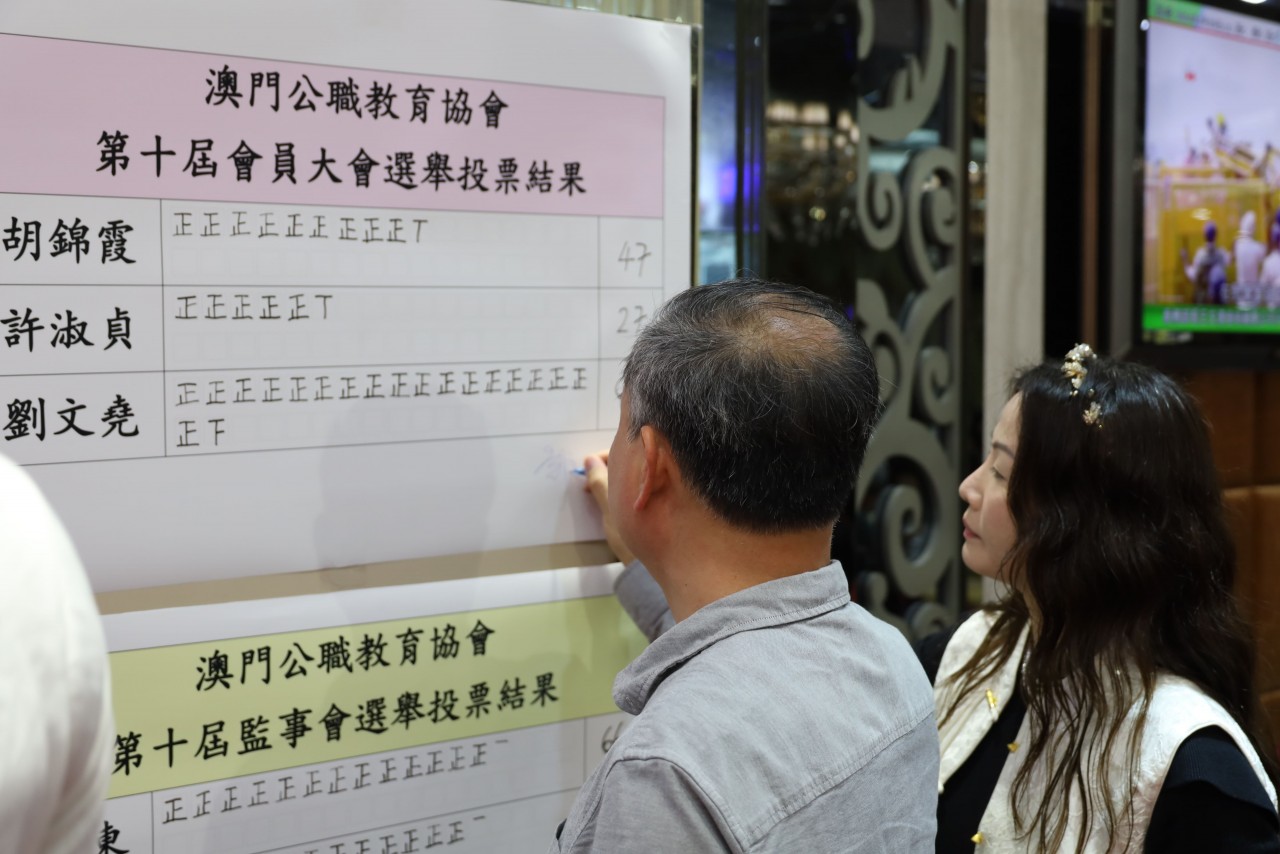 澳門公職教育協會
第十屆會員大會選舉投票結果
胡錦霞 正正正正正正正正正丅 47
許淑貞 正正正正正丅 27
劉文堯 正正正正正正正正正正正正正正正正
正下
澳門公職教育協會
第十屆監事會選舉投票結果
正正正正正正正正正正正正一 6
東